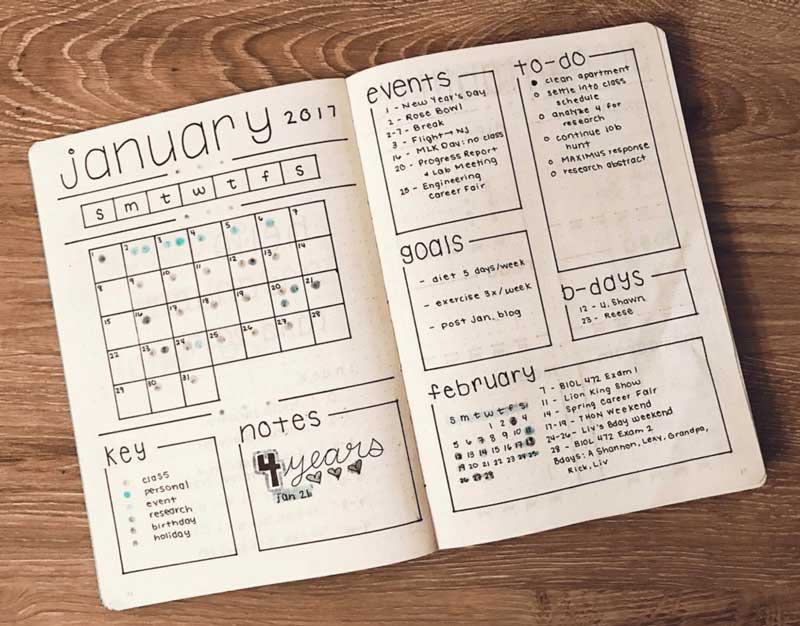 january 2017
s m t w t f s
1 2 3 4 5 6 7
8 9 10 11 12 13 14
15 16 17 18 19 20 21
22 23 24 25 26 27 28
29 30 31
key
class
personal
event
research
birthday
holiday
notes
4 years
Jan 21
events
1 - New Year's Day
2 - Rose Bowl
2-7 - Break
3 - Flight → NJ
16 - MLK Day: no class
20 - Progress Report
& Lab Meeting
25 - Engineering
career Fair
to-do
clean apartment
settle into class
schedule
analyze 4 for
research
continue job
hunt
MAXIMUS response
research abstract
goals
- diet 5 days/week
- exercise 3x/week
- post Jan. blog
b-days
12 - U. Shawn
23 - Reese
february
S m t w t f s
1 2 3 4
5 6 7 8 9 10 11
12 13 14 15 16 17 18
19 20 21 22 23 24 25
26 27 28
7 - BIOL 472 Exam 1
11 - Lion King Show
14 - Spring Career Fair
17-19 - THON Weekend
24-26 - Liv's Bday Weekend
28 - BIOL 472 Exam 2
Bdays: A Shannon, Lexy, Grandpa,
Rick, Liv